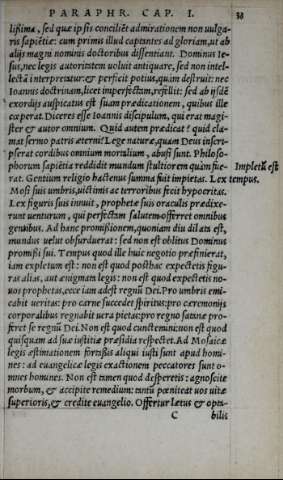 PARAPHR. CAP. I. 38
lißima, sed quæ ipsi conciliēt admirationem non uulga-
ris sapiētiæ: cum primis illud captantes ad gloriam, ut ab
alijs magni nominis doctoribus dissentiant. Dominus Ie-
sus, nec legis autoritatem uoluit antiquare, sed non intel-
lecta interpretatur: & perficit potius, quàm destruit: nec
Ioannis doctrinam, licet imperfectam, refellit: sed ab ijsdē
exordijs auspicatus est suam prædicationem, quibus ille
cœperat. Diceres esse Ioannis discipulum, qui erat magi-
ster & autor omnium. Quid autem prædicat? quid cla-
mat sermo patris æterni? Lege naturæ, quam Deus inscri-
pserat cordibus omnium mortalium, abusi sunt. Philoso-
phorum sapiētia reddidit mundum stultiorem quàm fue-
rat. Gentium religio hactenus summa fuit impietas. Lex
Impletū est tempus.
Mosi suis umbris, uictimis ac terroribus fecit hypocritas.
Lex figuris suis innuit, prophetæ suis oraculis prædixe-
runt uenturum, qui perfectam salutem offerret omnibus
gentibus. Ad hanc promißionem, quoniam diu dilata est,
mundus uelut obsurduerat: sed non est oblitus Dominus
promißi sui. Tempus quod ille huic negotio præfinierat,
iam expletum est: non est quod posthac expectetis figu-
ras alias, aut ænigmam legis: non est quod expectetis no-
uos prophetas, ecce iam adest regnū Dei. Pro umbris emi-
cabit ueritas: pro carne succedet spiritus: pro cæremonijs
corporalibus regnabit uera pietas: pro regno satanæ pro-
feret se regnū Dei. Non est quod cunctemini: non est quod
quisquam ad suæ iustitiæ præsidia respectet. Ad Mosaicæ
legis æstimationem forsitan aliqui iusti sunt apud homi-
nes: ad euangelicæ legis exactionem peccatores sunt o-
mnes homines. Non est tamen quod desperetis: agnoscite
morbum, & accipite remedium: tantū pœniteat uos uitæ
superioris, & credite euangelio. Offertur lætus & opta-
C bilis